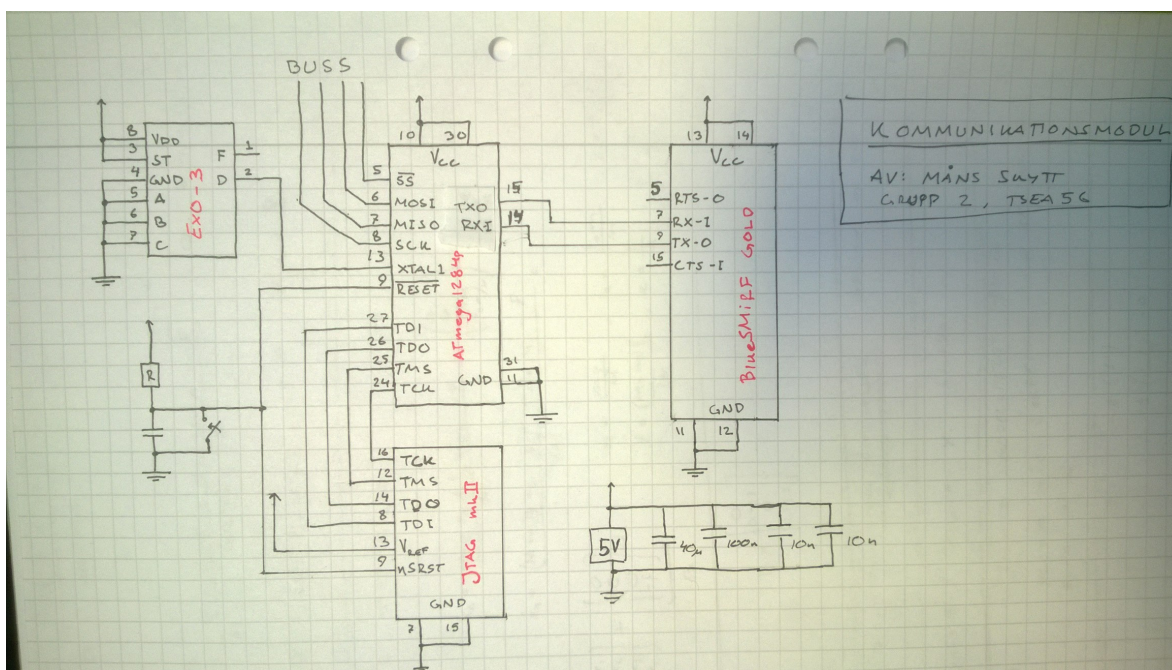 BUSS
KOMMUNIKATIONSMODUL
AV: MÅNS SKYTT
GRUPP 2, TSEA56
EXO-3
8 VDD
3 ST
4 GND
5 A
6 B
7 C
F 1
D 2
ATmega1284p
10 30
Vcc
5 SS
6 MOSI
7 MISO
8 SCK
13 XTAL1
9 RESET
27 TDI
26 TDO
25 TMS
24 TCK
TXO 15
RXI 14
31
GND 11
BlueSMiRF GOLD
13 14
Vcc
5 RTS-O
7 RX-I
9 TX-O
15 CTS-I
GND
11 12
R
JTAG mkII
16 TCK
12 TMS
14 TDO
8 TDI
13 VREF
9 nSRST
GND
7 15
5V
40µ 100n 10n 10n